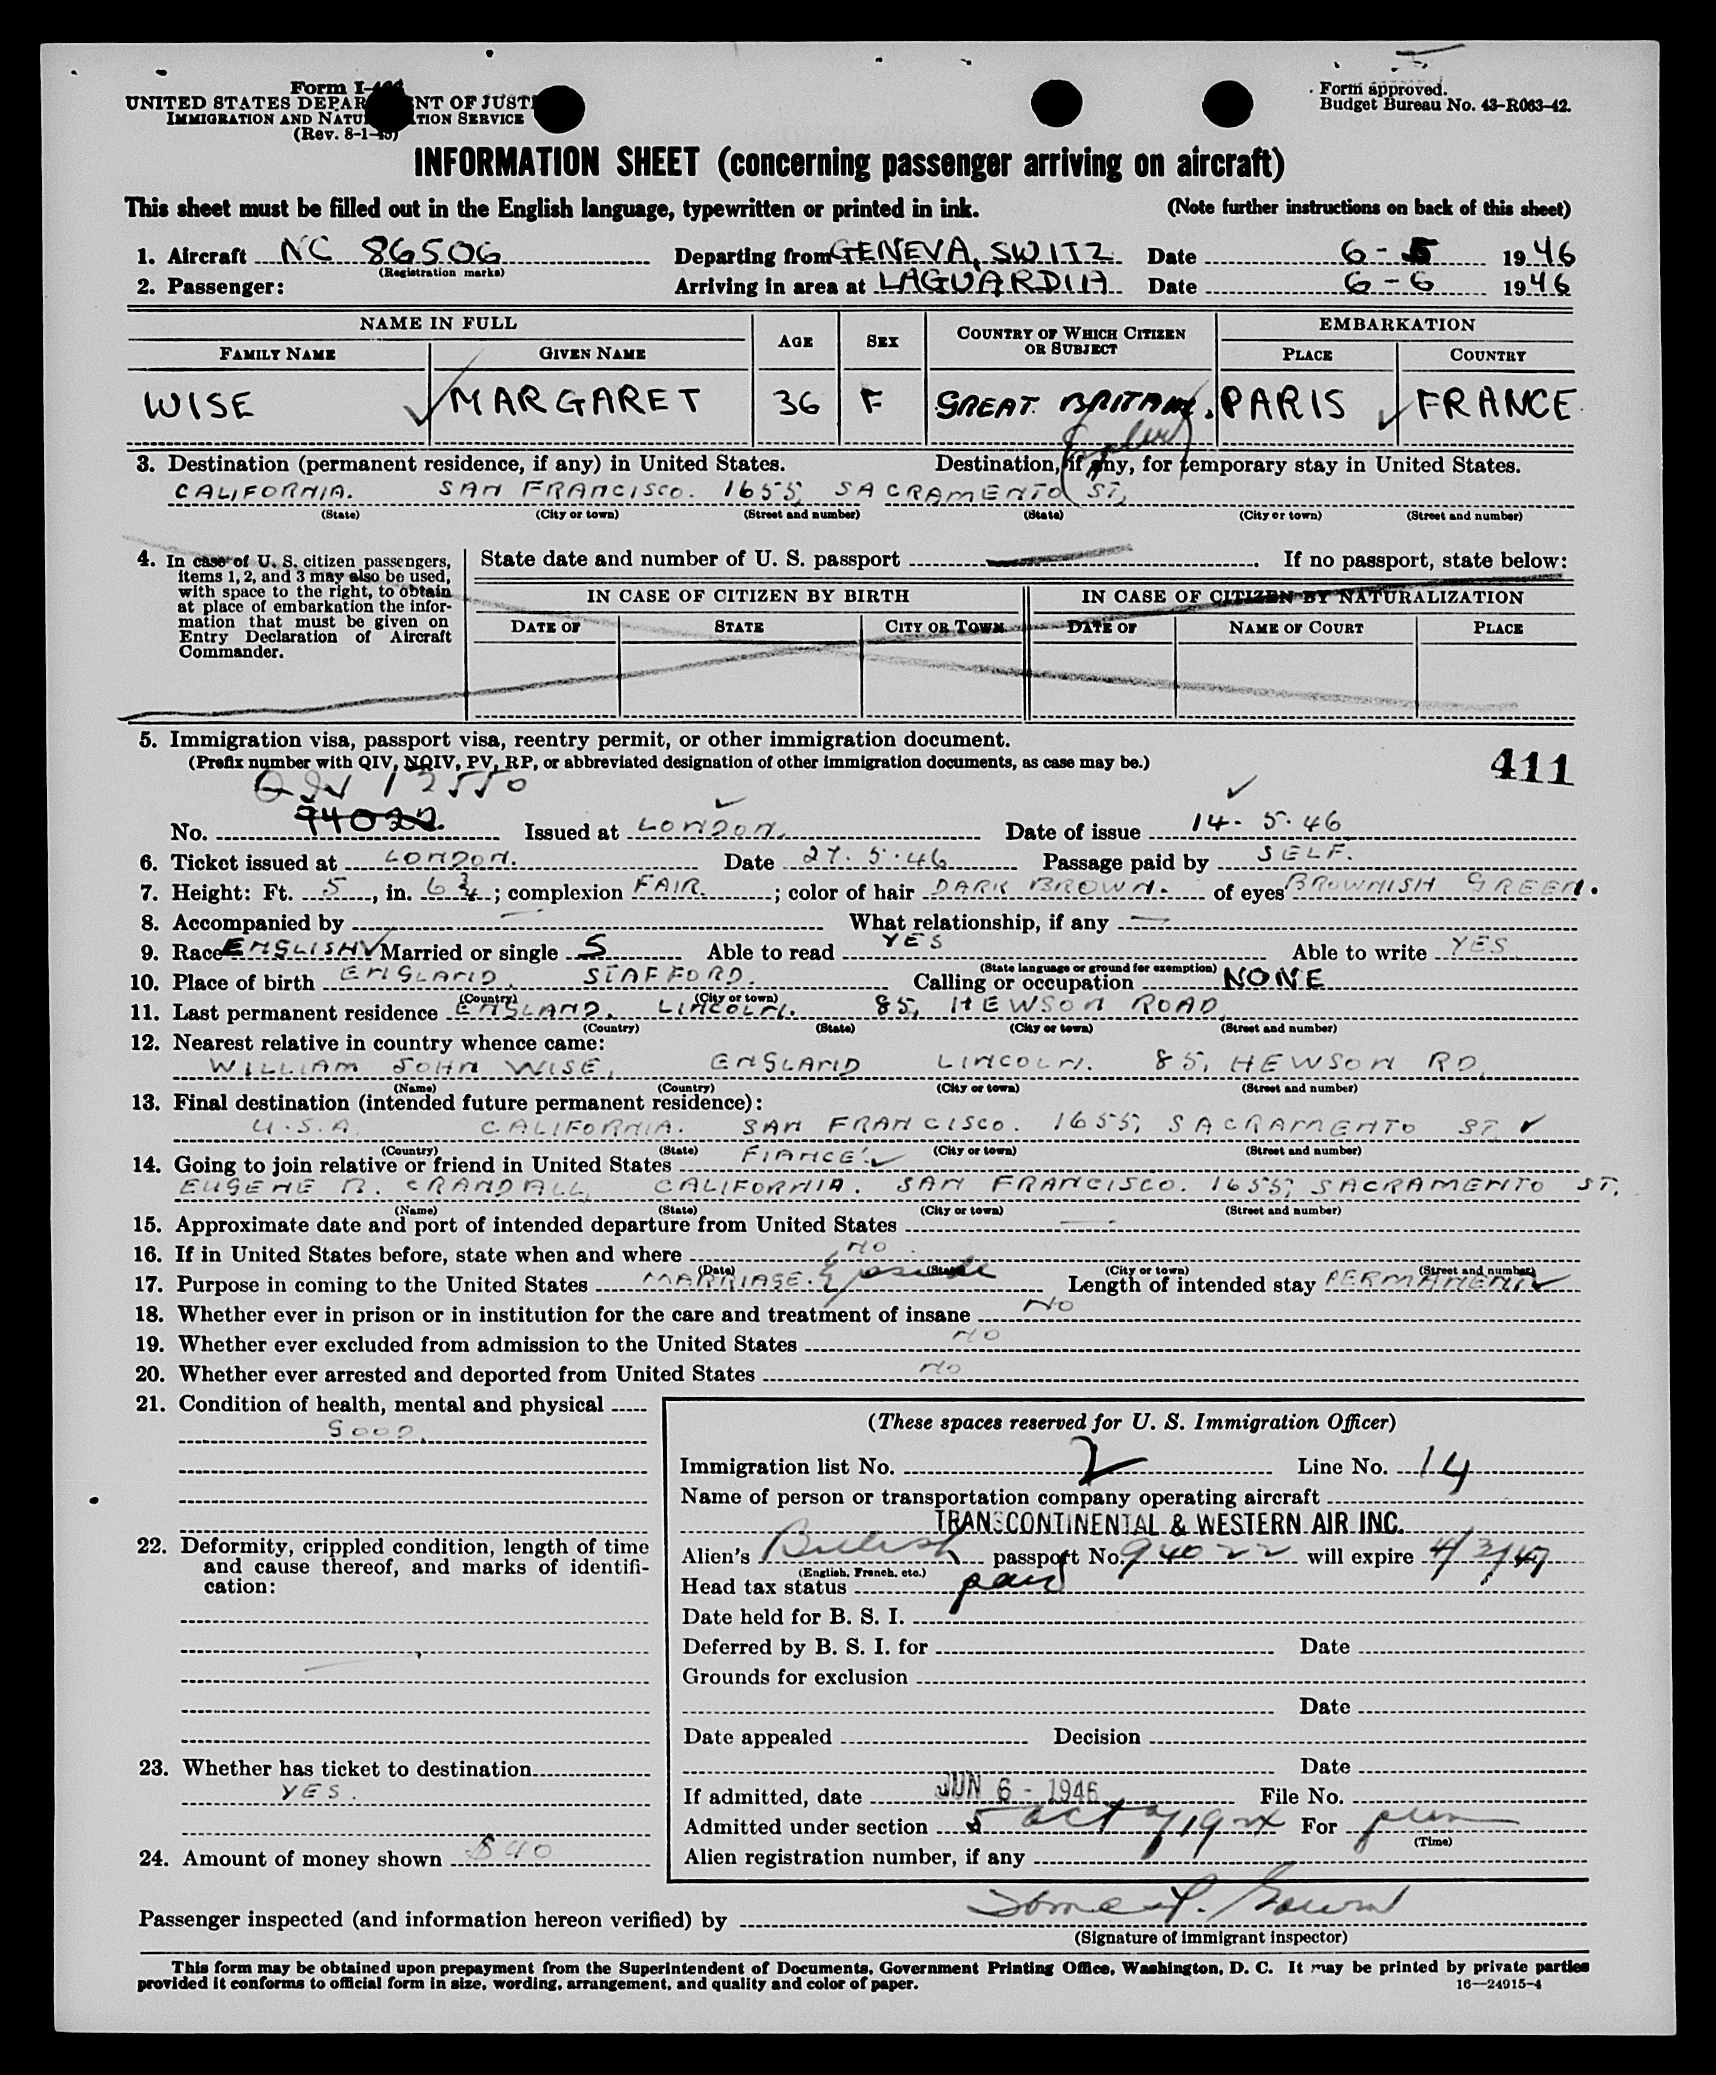 Form I-
UNITED STATES DEPAR NT OF JUST
IMMIGRATION AND NATU TION SERVICE
(Rev. 8-1-45)
Form approved.
Budget Bureau No. 43-R063-42.
INFORMATION SHEET (concerning passenger arriving on aircraft)
This sheet must be filled out in the English language, typewritten or printed in ink. (Note further instructions on back of this sheet)
1. Aircraft NC 86506 Departing from GENEVA, SWITZ Date 6-5 1946
(Registration marks)
2. Passenger: Arriving in area at LAGUARDIA Date 6-6 1946
NAME IN FULL AGE SEX COUNTRY OF WHICH CITIZEN OR SUBJECT EMBARKATION
FAMILY NAME GIVEN NAME PLACE COUNTRY
WISE MARGARET 36 F GREAT BRITAIN. PARIS FRANCE
3. Destination (permanent residence, if any) in United States. Destination, if any, for temporary stay in United States.
CALIFORNIA. SAN FRANCISCO. 1655, SACRAMENTO ST,
(State) (City or town) (Street and number) (State) (City or town) (Street and number)
4. In case of U. S. citizen passengers, items 1, 2, and 3 may also be used, with space to the right, to obtain at place of embarkation the information that must be given on Entry Declaration of Aircraft Commander.
State date and number of U. S. passport . If no passport, state below:
IN CASE OF CITIZEN BY BIRTH IN CASE OF CITIZEN BY NATURALIZATION
DATE OF STATE CITY OR TOWN DATE OF NAME OF COURT PLACE
5. Immigration visa, passport visa, reentry permit, or other immigration document.
(Prefix number with QIV, NQIV, PV, RP, or abbreviated designation of other immigration documents, as case may be.)
411
QIV 13550
No. 94022 Issued at LONDON. Date of issue 14-5-46
6. Ticket issued at LONDON. Date 27.5.46 Passage paid by SELF.
7. Height: Ft. 5, in. 6 3/4; complexion FAIR.; color of hair DARK BROWN. of eyes BROWNISH GREEN.
8. Accompanied by — What relationship, if any —
9. Race ENGLISH Married or single S Able to read YES Able to write YES
(State language or ground for exemption)
10. Place of birth ENGLAND, STAFFORD. Calling or occupation NONE
(Country) (City or town)
11. Last permanent residence ENGLAND. LINCOLN. 85, HEWSON ROAD,
(Country) (State) (City or town) (Street and number)
12. Nearest relative in country whence came:
WILLIAM JOHN WISE, ENGLAND LINCOLN. 85, HEWSON RD,
(Name) (Country) (City or town) (Street and number)
13. Final destination (intended future permanent residence):
U.S.A. CALIFORNIA. SAN FRANCISCO. 1655, SACRAMENTO ST,
(Country) (State) (City or town) (Street and number)
14. Going to join relative or friend in United States FIANCE.
EUGENE B. CRANDALL, CALIFORNIA. SAN FRANCISCO. 1655, SACRAMENTO ST,
(Name) (State) (City or town) (Street and number)
15. Approximate date and port of intended departure from United States —
16. If in United States before, state when and where NO
(Date) (State) (City or town) (Street and number)
17. Purpose in coming to the United States MARRIAGE. & reside Length of intended stay PERMANENT
18. Whether ever in prison or in institution for the care and treatment of insane NO
19. Whether ever excluded from admission to the United States NO
20. Whether ever arrested and deported from United States NO
21. Condition of health, mental and physical
GOOD.
22. Deformity, crippled condition, length of time and cause thereof, and marks of identification:
—
23. Whether has ticket to destination
YES.
24. Amount of money shown $40
(These spaces reserved for U. S. Immigration Officer)
Immigration list No. 2 Line No. 14
Name of person or transportation company operating aircraft
TRANSCONTINENTAL & WESTERN AIR INC.
Alien's British passport No. 94022 will expire 4/3/47
(English, French, etc.)
Head tax status paid
Date held for B. S. I.
Deferred by B. S. I. for Date
Grounds for exclusion
Date
Date appealed Decision
Date
If admitted, date JUN 6 - 1946 File No.
Admitted under section 5 act of 1924 For perm
(Time)
Alien registration number, if any
Passenger inspected (and information hereon verified) by
(Signature of immigrant inspector)
This form may be obtained upon prepayment from the Superintendent of Documents, Government Printing Office, Washington, D. C. It may be printed by private parties
provided it conforms to official form in size, wording, arrangement, and quality and color of paper. 16—24915-4